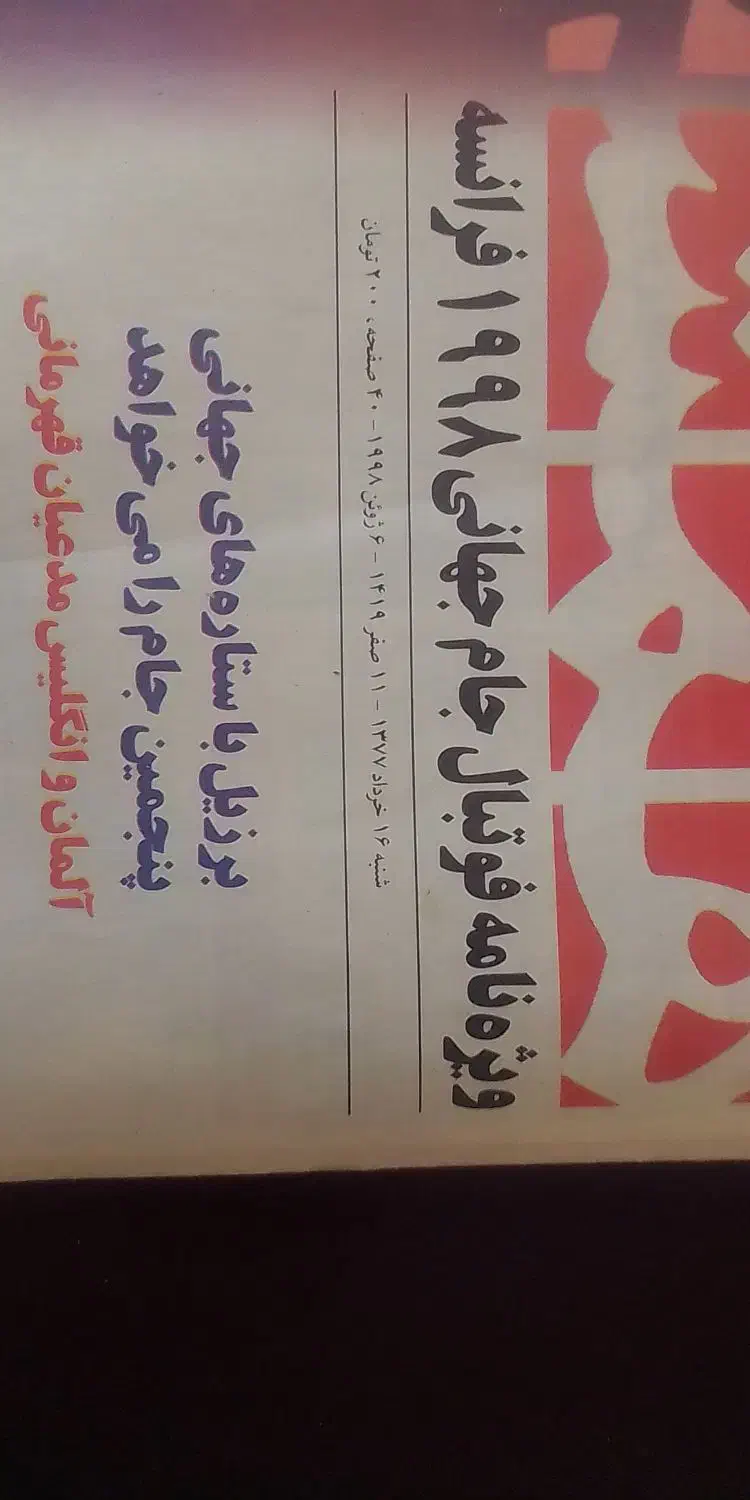 ویژه‌نامه فوتبال جام جهانی ۱۹۹۸ فرانسه
شنبه ۱۶ خرداد ۱۳۷۷ - ۱۱ صفر ۱۴۱۹ - ۶ ژوئن ۱۹۹۸ - ۴۰ صفحه، ۲۰۰ تومان
برزیل با ستاره‌های جهانی
پنجمین جام را می‌خواهد
آلمان و انگلیس مدعیان قهرمانی